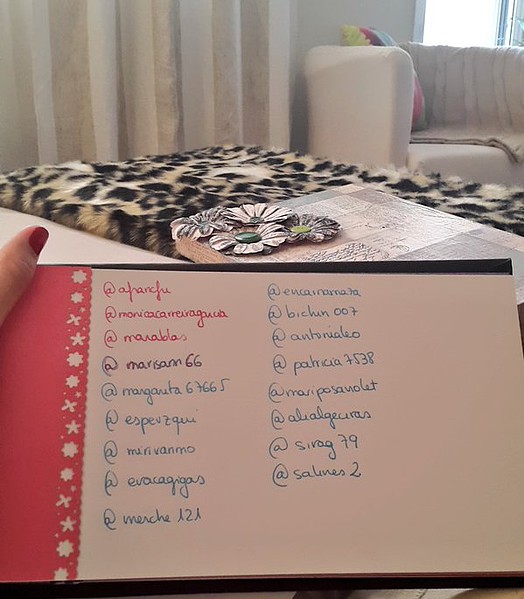 @afanfu
@monicacarreiragarcia
@marablas
@marisam66
@margarita67665
@esperzqui
@mirivanmo
@evacagigas
@merche121
@encarnamaza
@bichin007
@antonialeo
@patricia7538
@mariposaviolet
@alialgeciras
@sirag79
@salines2